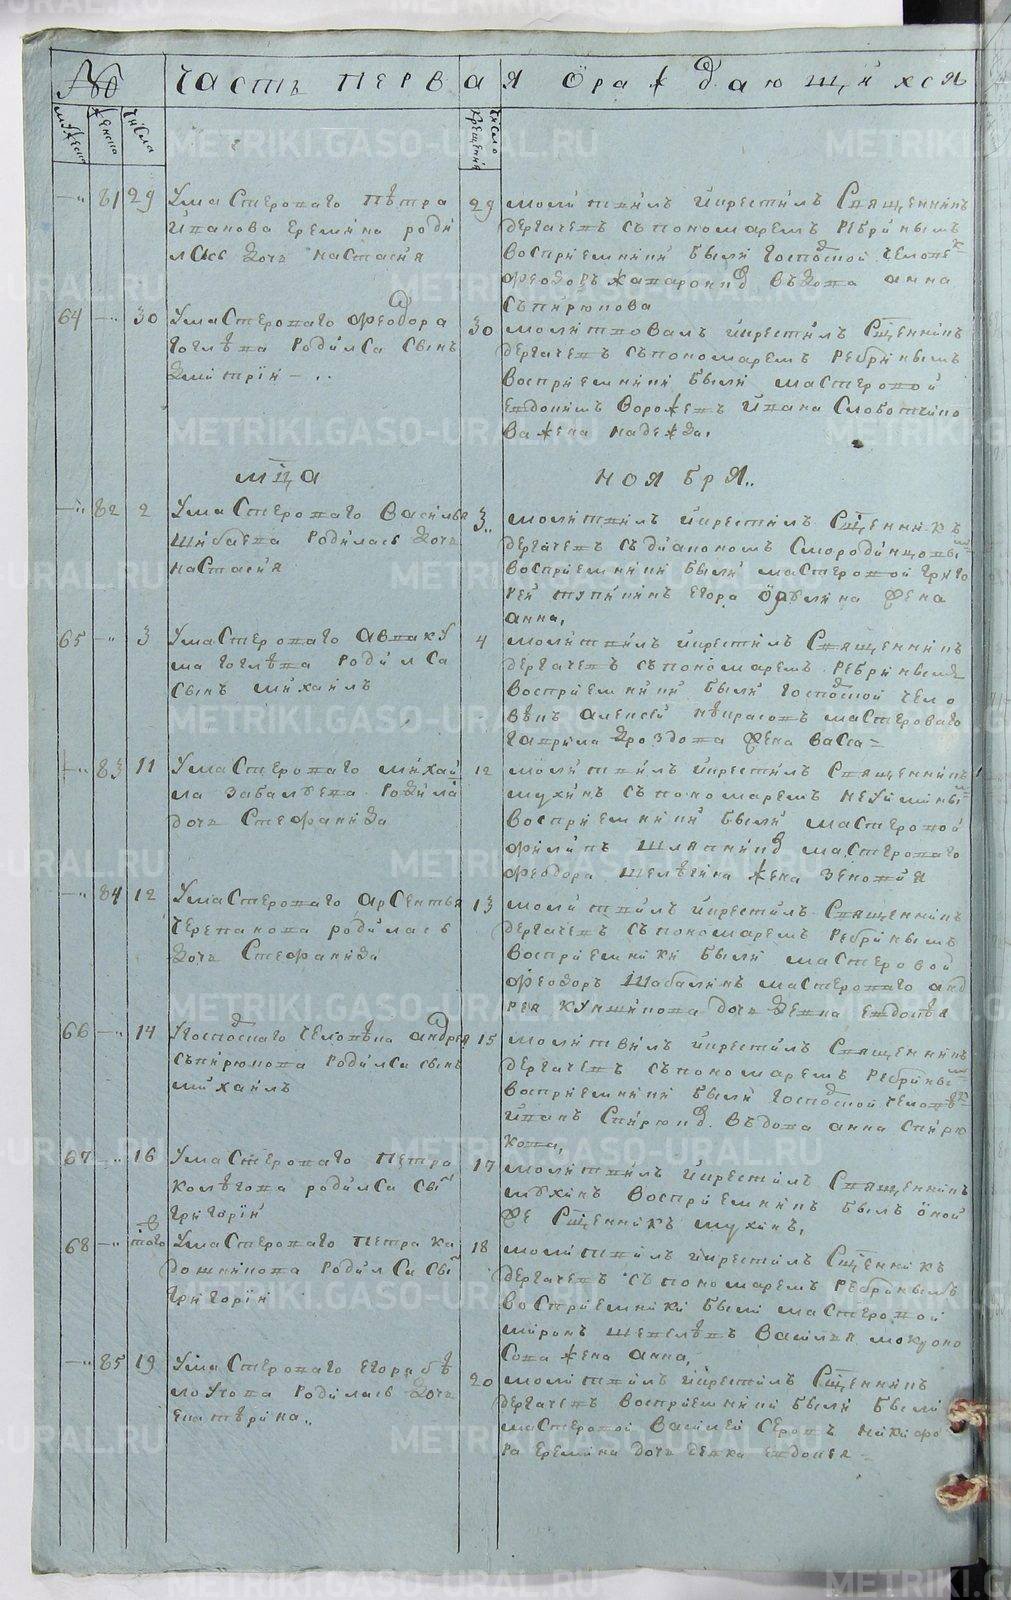 № Часть первая о раждающихся
мужеск женска числа число крещения
81 29 У мастероваго Петра
Иванова Еремина роди
лась дочь Настасия
29 молитвил и крестил Священник
Дергачев с пономарем Ребриным
восприемники были господской челове
Феодор Хапаров вдова Анна
Спирюкова
64 30 У мастероваго Феодора
Гоглева родился сын
Димитрий
30 молитвовал и крестил Сщенник
Дергачев с пономарем Ребриным
восприемники были мастеровой
Евдоким Ворожев Ивана Слоботчико
ва жена Надежда.
мца ноября
82 2 У мастероваго Василья
Шибаева родилась дочь
Настасия
3 молитвил и крестил Сщенник
Дергачев с дияконом Смородинцовы
восприемники были мастеровой Григо
рей Егора жена
Анна,
65 3 У мастероваго Авваку
ма Гоглева родился
сын Михаил
4 молитвил и крестил Священник
Дергачев с пономарем Ребриным
восприемники были господской чело
век Алексей Некрасов мастероваго
Гаврила Дроздова жена Васса
83 11 У мастероваго Михай
ла родила
дочь Стефанида
12 молитвил и крестил Священник
Мухин с пономарем
восприемники были мастеровой
Филип мастероваго
Феодора жена
84 12 У мастероваго Арсентья
Черепанова родилась
дочь Стефанида
13 молитвил и крестил Священник
Дергачев с пономарем Ребриным
восприемники были мастеровой
Феодор Шабалин мастероваго Анд
рея Кукшинова дочь девка Евдокея
66 14 У господскаго человека Андрея
Спирюкова родился сын
Михаил
15 молитвил и крестил Священник
Дергачев с пономарем Ребрины
восприемники были господской челове
Иван Спирюков вдова Анна Спирю
кова,
67 16 У мастероваго Петра
Колегова родился сы
Григорий
17 молитвил и крестил Священник
Мухин восприемник был оной
же Сщенник Мухин,
68 того У мастероваго Петра Ка
дошникова родился сы
Григорий
18 молитвил и крестил Сщенник
Дергачев с пономарем Ребриным
восприемники были мастеровой
Мирон Щепелев Василья Мокроно
сова жена Анна,
85 19 У мастероваго Егора Бе
лоусова родилась дочь
Екатерина.
20 молитвил и крестил Сщенник
Дергачев восприемники были были
мастеровой Василей Серов Никифо
ра Еремина дочь девка Евдокея
METRIKI.GASO-URAL.RU